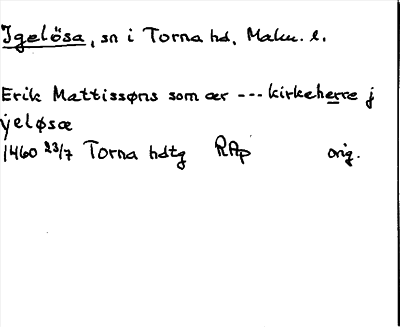 Igelösa, sn i Torna hd, Malm. l.
Erik Mattissøns som ær --- kirkeherre j
yeløsæ
1460 23/7 Torna hdtg RAp orig.